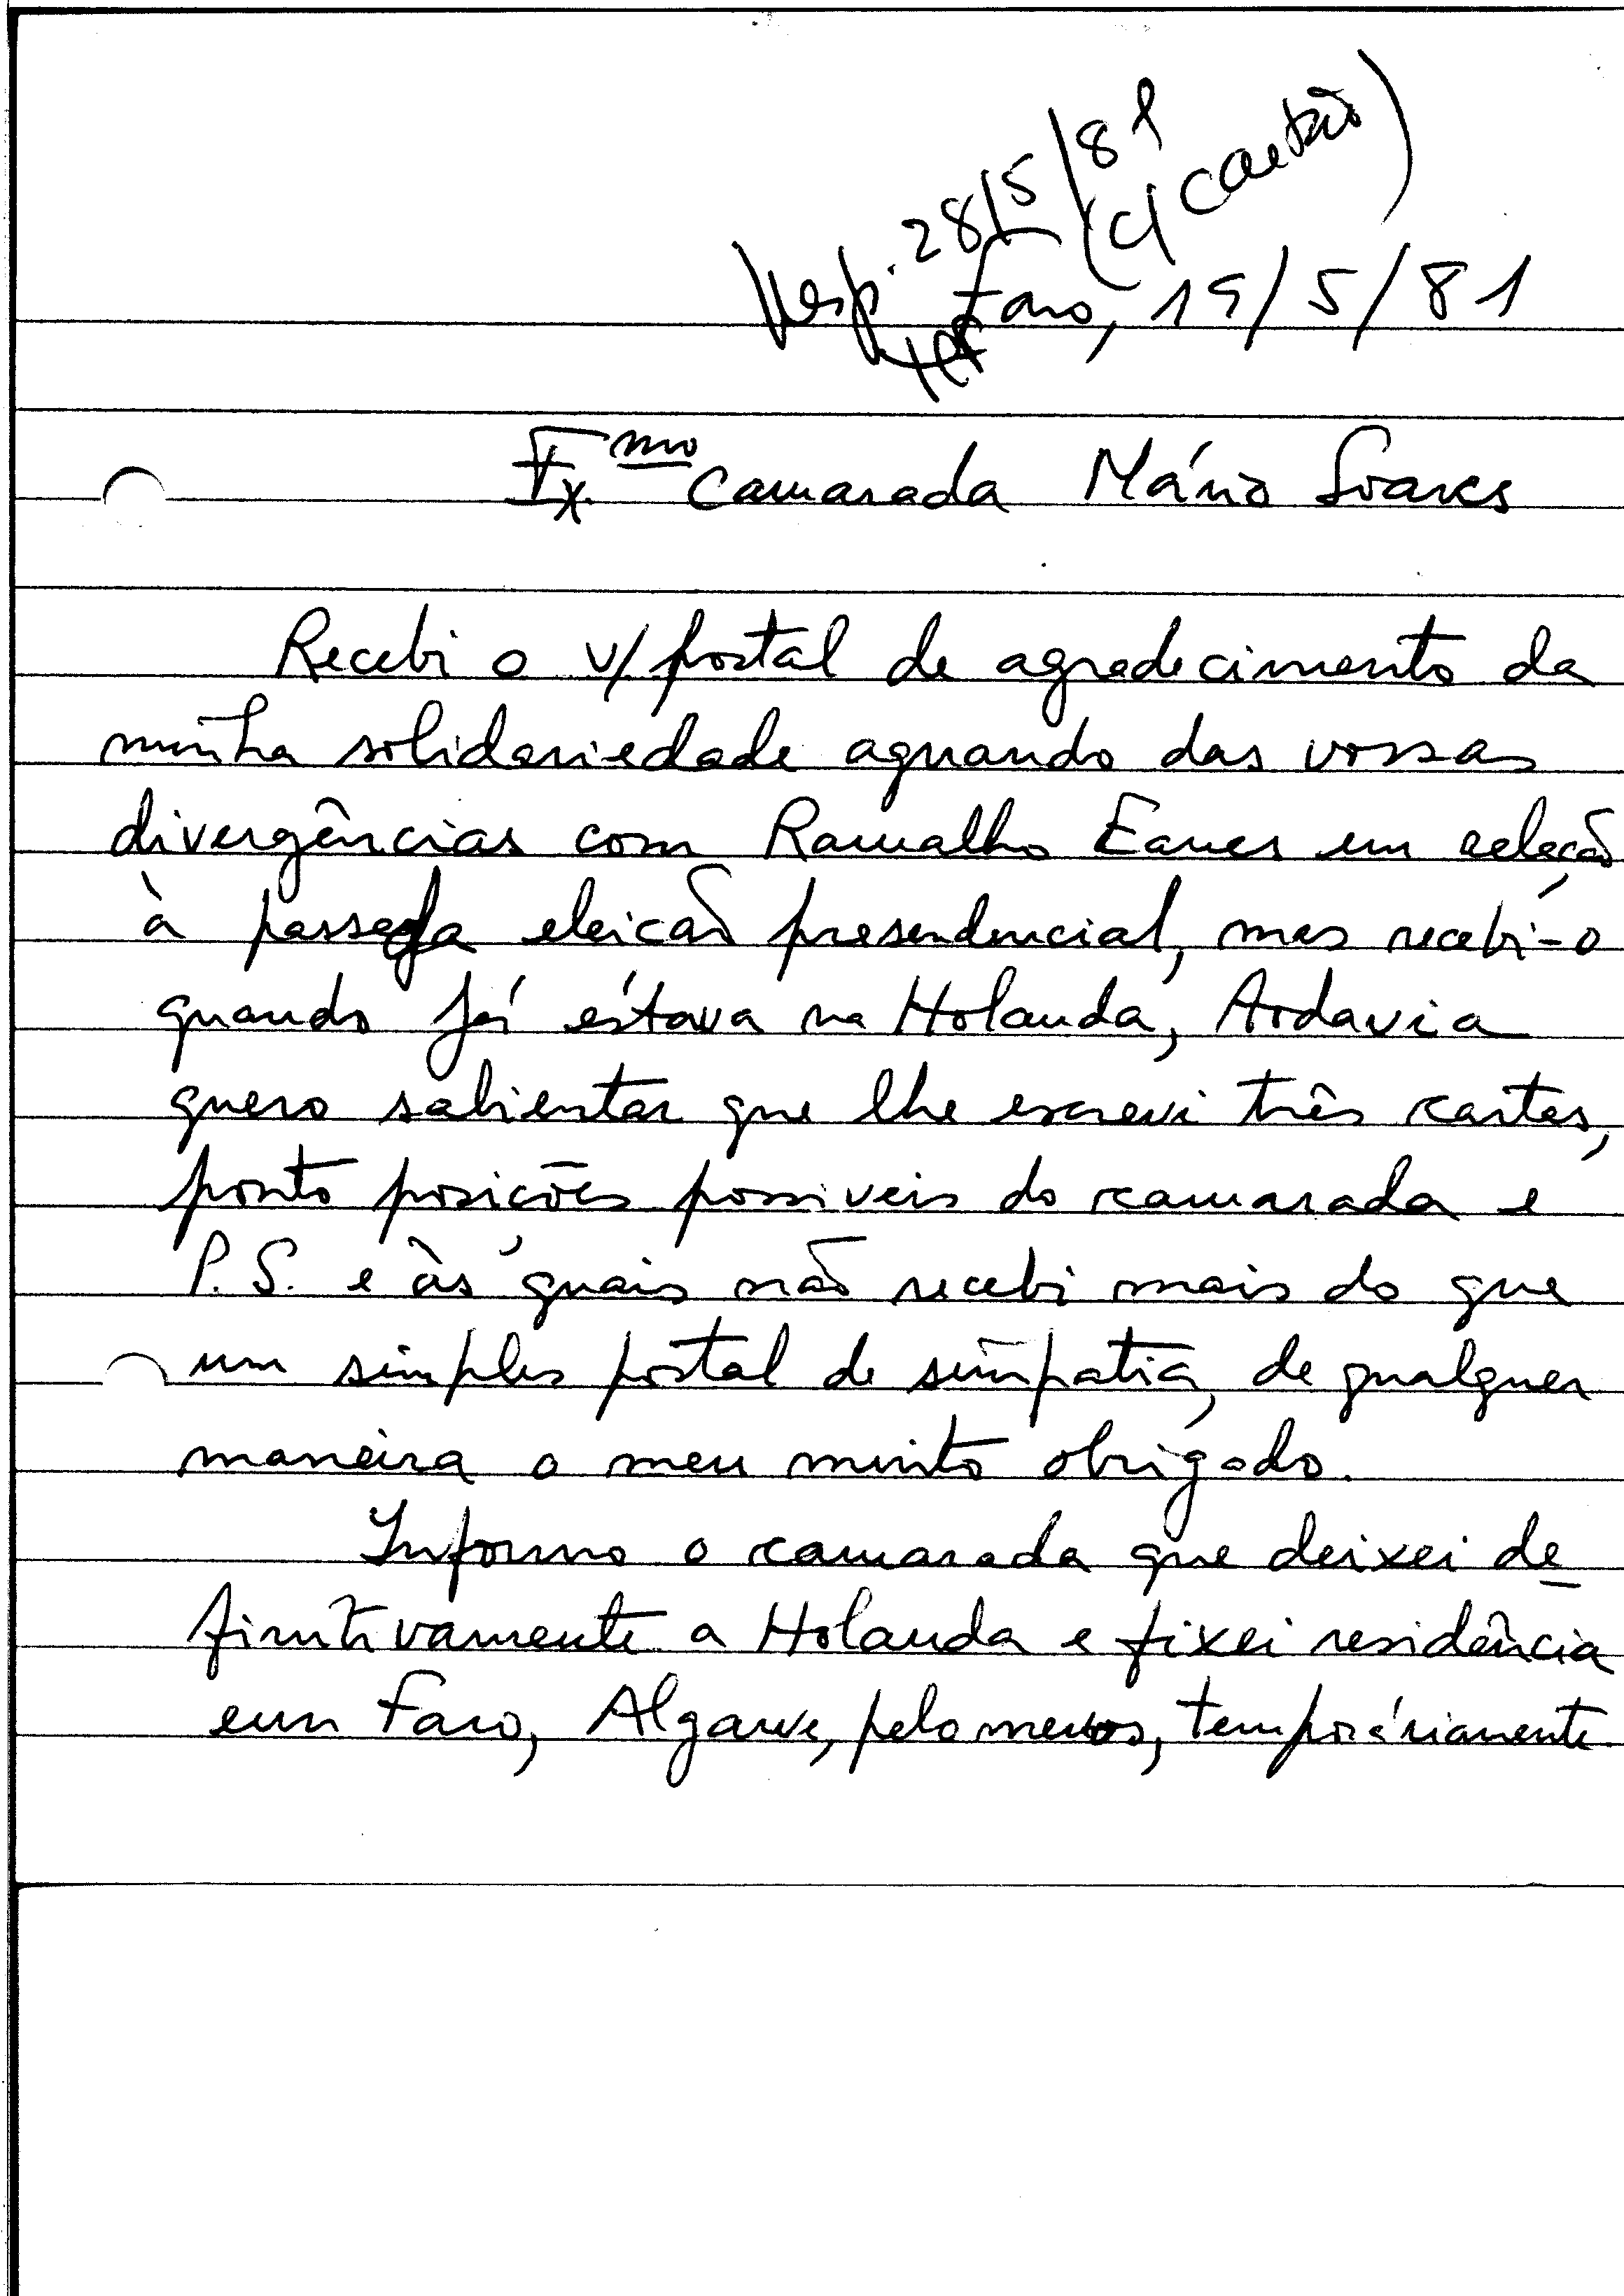 Resp. 28/5/81
(c/ cartão)
Faro, 19/5/81
Exmo Camarada Mário Soares
Recebi o v/ postal de agradecimento da
minha solidariedade aquando das vossas
divergências com Ramalho Eanes em relação
à passada eleição presendencial, mas recebi-o
quando já estava na Holanda, Todavia
quero salientar que lhe escrevi três cartas,
ponto posições possiveis do camarada e
P.S. e às quais não recebi mais do que
um simples postal de simpatia, de qualquer
maneira o meu muito obrigado.
Informo o camarada que deixei de
finitivamente a Holanda e fixei residência
em Faro, Algarve, pelo menos, temporáriamente.